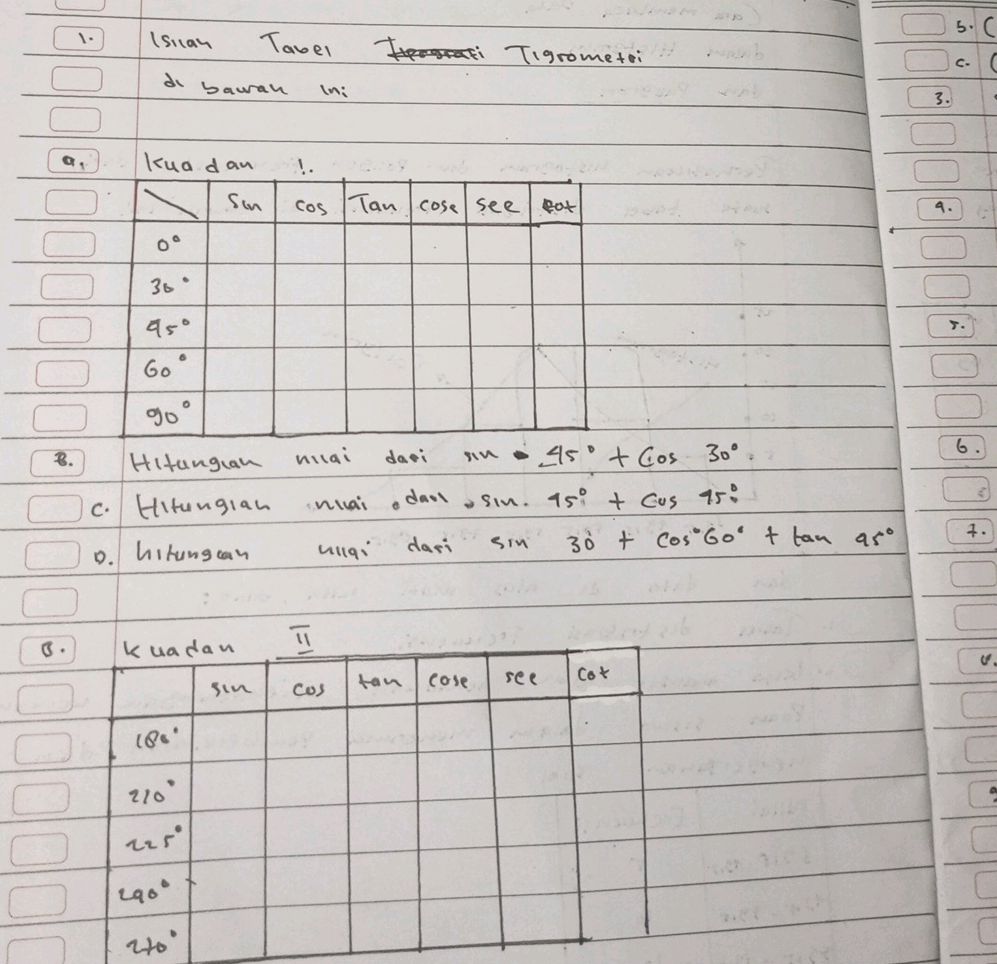 1. Isilah Tabel Tigrometri
di bawah ini
a. Kuadan I.
Sin cos Tan cose see cot
0°
30°
45°
60°
90°
B. Hitunglah nilai dari sin 45° + Cos 30°.
C. Hitunglah nilai dari sin. 45° + Cos 45°
D. hitunglah nilai dari sin 30 + Cos°60° + tan 45°
B. Kuadan II
sin cos tan cose see cot
180°
210°
225°
240°
270°
b.
c.
3.
4.
5.
6.
7.